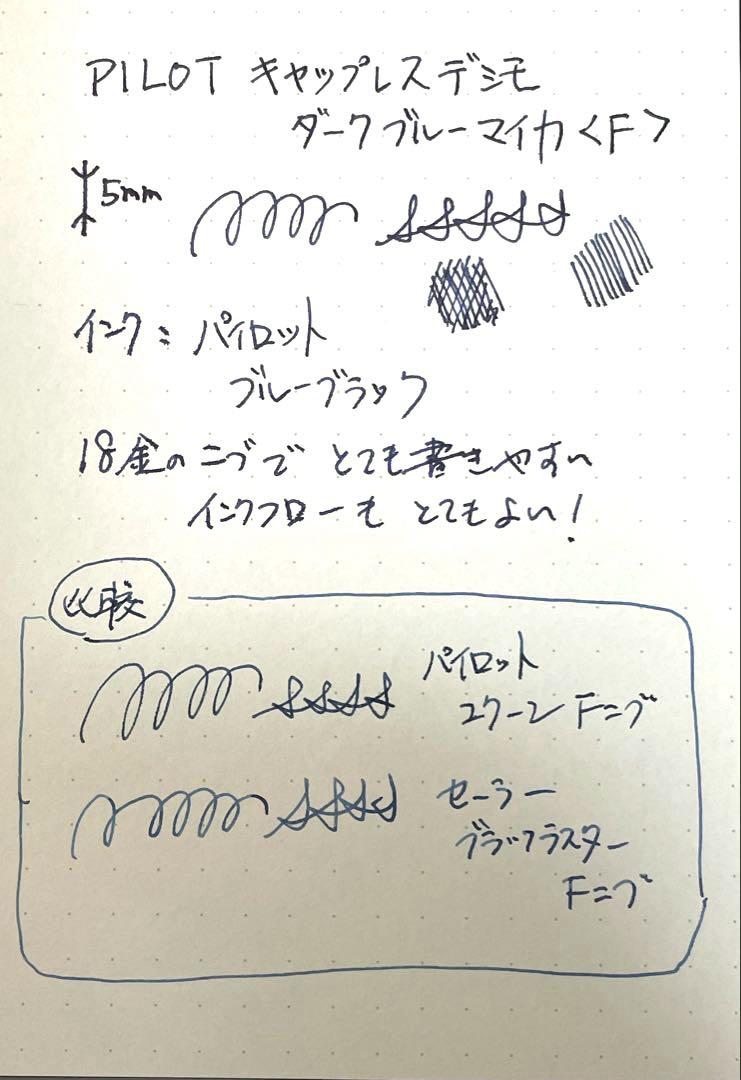 PILOT キャップレスデシモ
ダークブルーマイカ<F>
5mm
インク：パイロット
ブルーブラック
18金のニブでとても書きやすい
インクフローもとてもよい！
比較
パイロット
エクーン Fニブ
セーラー
ブラックラスター
Fニブ